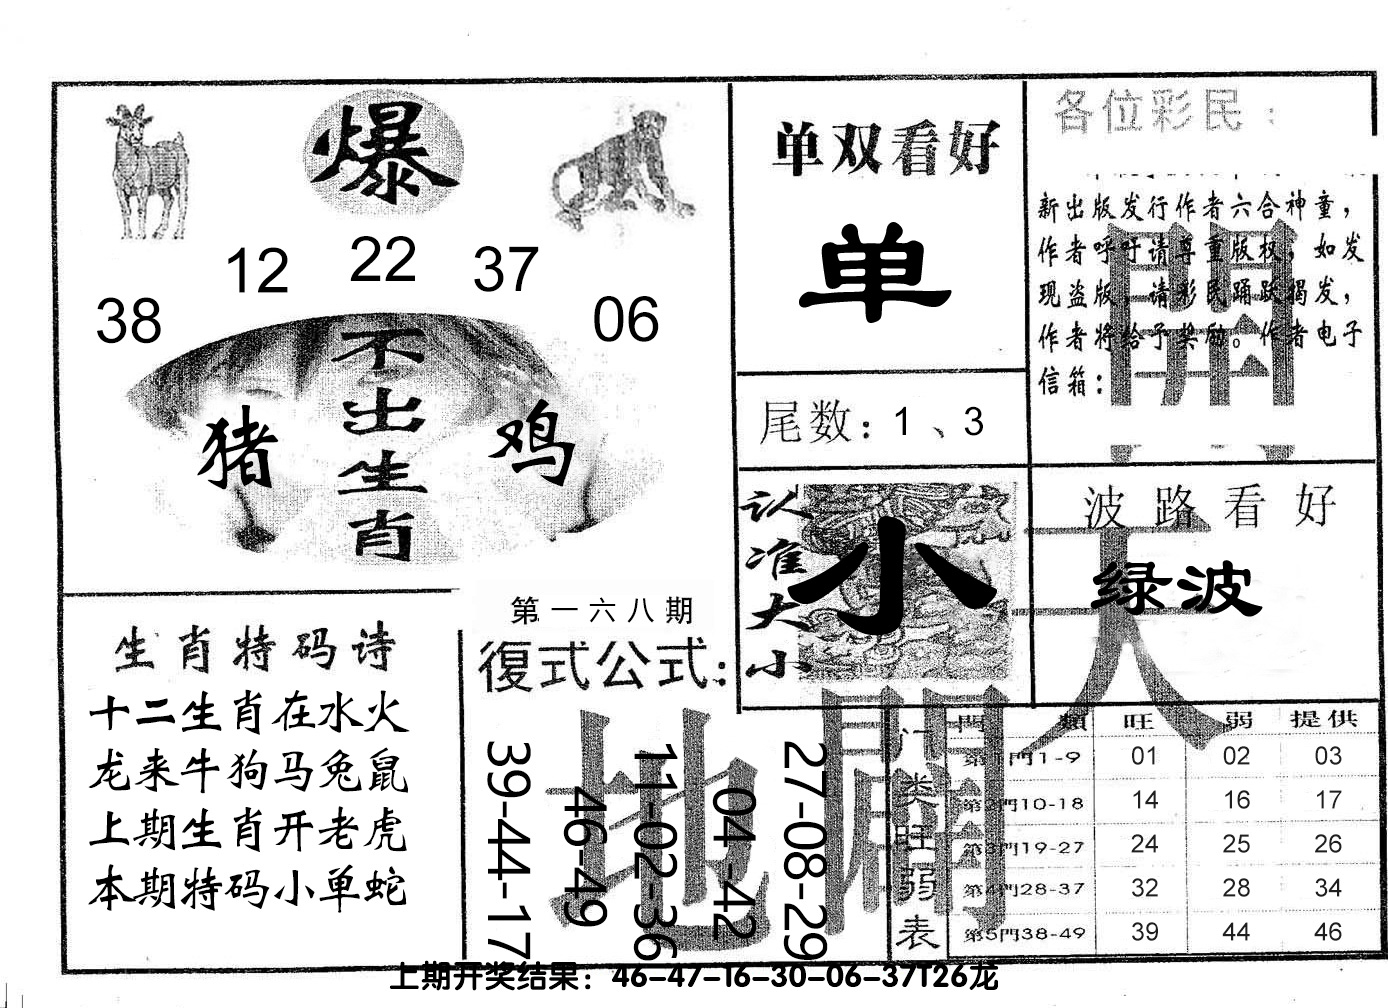 爆
38 12 22 37 06
不出生肖
猪 鸡
单双看好
单
尾数：1、3
各位彩民：
新出版发行作者六合神童，
作者呼吁请尊重版权，如发
现盗版，请彩民踊跃揭发，
作者将给予奖励。作者电子
信箱：
認准大小
小
波路看好
绿波
天
開
地
開
生肖特码诗
十二生肖在水火
龙来牛狗马兔鼠
上期生肖开老虎
本期特码小单蛇
第一六八期
復式公式：
39-44-17
46-49
11-02-36
04-42
27-08-29
门类旺弱表
門類 旺 弱 提供
第1門1-9 01 02 03
第2門10-18 14 16 17
第3門19-27 24 25 26
第4門28-37 32 28 34
第5門38-49 39 44 46
上期开奖结果：46-47-16-30-06-37T26龙